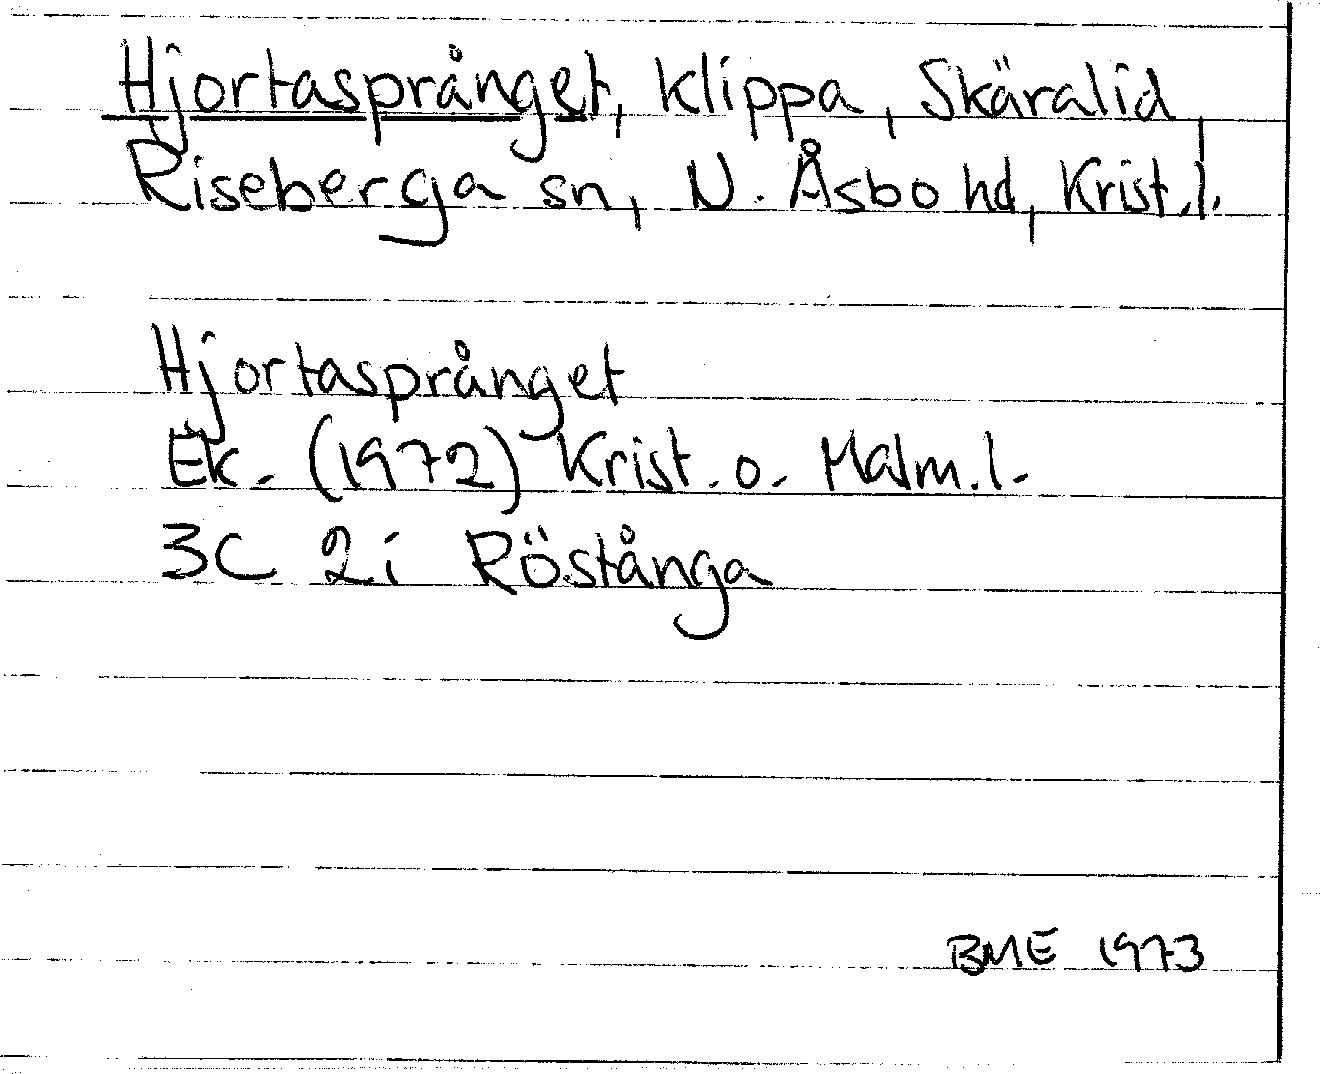 Hjortasprånget, klippa, Skäralid,
Riseberga sn, N. Åsbo hd, Krist.l.
Hjortasprånget
Ek. (1972) Krist. o. Malm.l.
3C 2i Röstånga
BME 1973